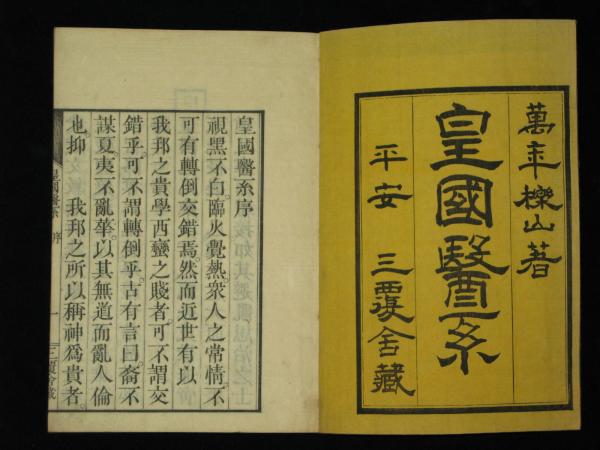 萬年櫟山著
皇國醫系
平安 三覆舍藏
皇國醫系序
視黑不白。臨火覺熱。衆人之常情。不
可有轉倒交錯焉。然而近世有以
我邦之貴學西蠻之賤者。可不謂交
錯乎。可不謂轉倒乎。古有言曰。裔不
謀夏夷不亂華。以其無道而亂人倫
也。抑 我邦之所以稱神爲貴者。
皇國醫系 序 一 三覆舍藏